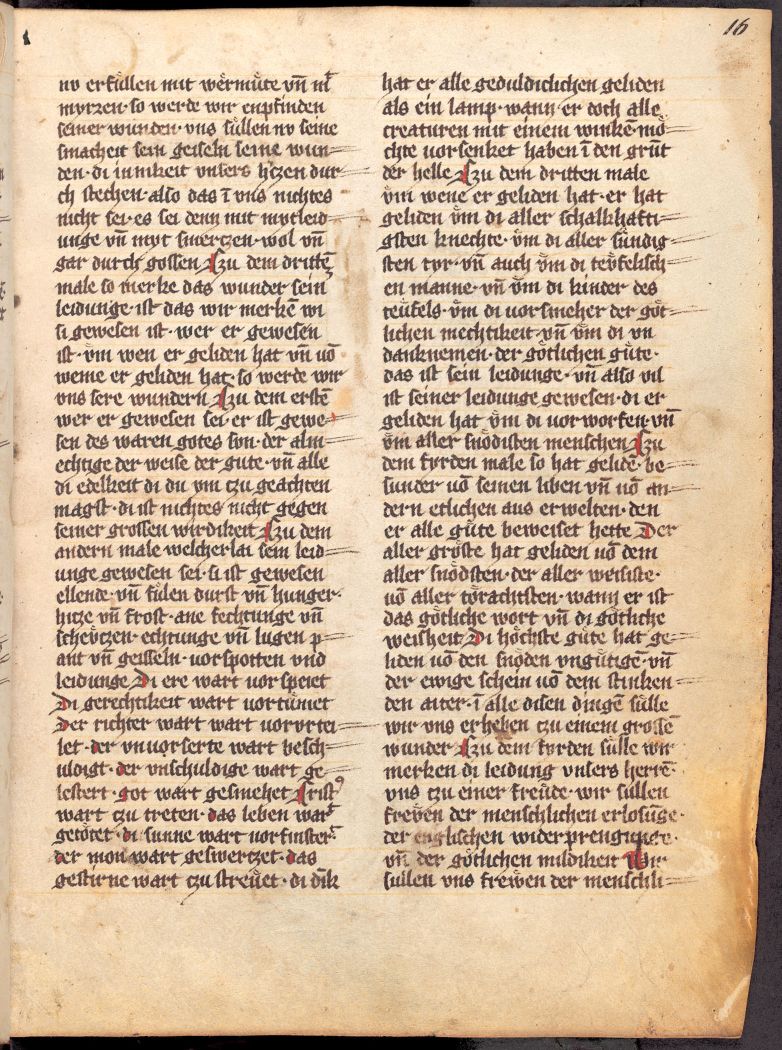 16
nv erfu̍llen mit we̍rmu̍te vn̄ mͥ
myrzen· so werde wir enpfinden
seiner wunden· vns su̍llen nv seine
smacheit sein geiseln seine wun=
den· di inikeit vnsers h'czen dur=
ch stechen· also das ī vns nichtes
nicht sei· es sei denn mit mytleid=
unge vn̄ myt smertzen· wol vn̄
gar durch gossen Czu dem dritte̅
male so merke das wunder sein
leidunge· ist das wir merke̅ wi
si gewesen ist· wer er gewesen
ist· v̍m wen er geliden hat vn̄ vō
weme er geliden hat· so werde wir
vns sere wundern Czu dem erste̅
wer er gewesen sei· er ist gewe=
sen des waren gotes svn· der alm=
echtige der weise der gute· vn̄ alle
di edelkeit di du ym czu geachten
magst· di ist nichtes nicht gegen
seiner grossen wirdikeit Czu dem
andern male welcherlai sein leid=
unge gewesen sei· si ist gewesen
ellende· vn̄ fu̍len durst vn̄ hunger·
hitze vn̄ frost· ane fechtunge vn̄
schev̍tzen· echtunge vn̄ lugen p=
ant vn̄ geisseln· vorspotten vnd
leidunge Di ere wart vorspeiet
Di gerechtikeit wart vortu̍met
Der richter wart wart vorvrtei=
let· der vnvorserte wart besch=
uldigt· der vnschuldige wart ge=
lestert· got wart gesmehet Crist9
wart czu treten· das leben wart
geto̍tet· di sunne wart vorfinstert
der mon wart geswertzet· das
gestirne wart czu strev̍et· di dīk
hat er alle geduldiclichen geliden
als ein lamp· wann er doch alle
creaturen mit einem winke̅ mo̍=
chte vorsenket haben ī den gru̍t
der helle Czu dem dritten male
v̍m wene er geliden hat· er hat
geliden v̍m di aller schalkhafti=
gsten knechte· v̍m di aller su̍ndig=
sten tyr· vn̄ auch v̍m di tev̍felsch=
en manne· vn̄ v̍m di kinder des
teu̍fels· v̍m di vorsmeher der go̍t=
lichen mechtikeit· vn̄ v̍m di vn
danknemen· der go̍tlichen gu̍te·
das ist sein leidunge· vn̄ also vil
ist seiner leidunge gewesen· di er
geliden hat v̍m di vorworfen· vn̄
v̍m aller sno̍disten menschen Czu
dem fyrden male so hat gelide̅· be=
sunder vō seinen liben vn̄ vō an=
dern etlichen aus erwelten· den
er alle gu̍te beweiset hette Der
aller gro̍ste hat geliden vō dem
aller sno̍dsten· der aller weisiste·
vō aller to̍rachtsten· wann er ist
das go̍tliche wort vn̄ di go̍tliche
weisheit Di ho̍chste gu̍te hat ge=
liden vō den sno̍den vngu̍tige̅· vn̄
der ewige schein vō dem stinken=
den aiter· ī alle disen dinge̅ su̍lle
wir vns erheben czu einem grosse̅
wunder Czu dem fyrden su̍lle wir
merken di leidung vnsers herre̅·
vns czu einer freu̍de· wir su̍llen
frev̍en der menschlichen erlosu̅ge·
der englischen widerprengunge·
vn̄ der go̍tlichen mildikeit Wir
su̍llen vns frew̍en der menschli=